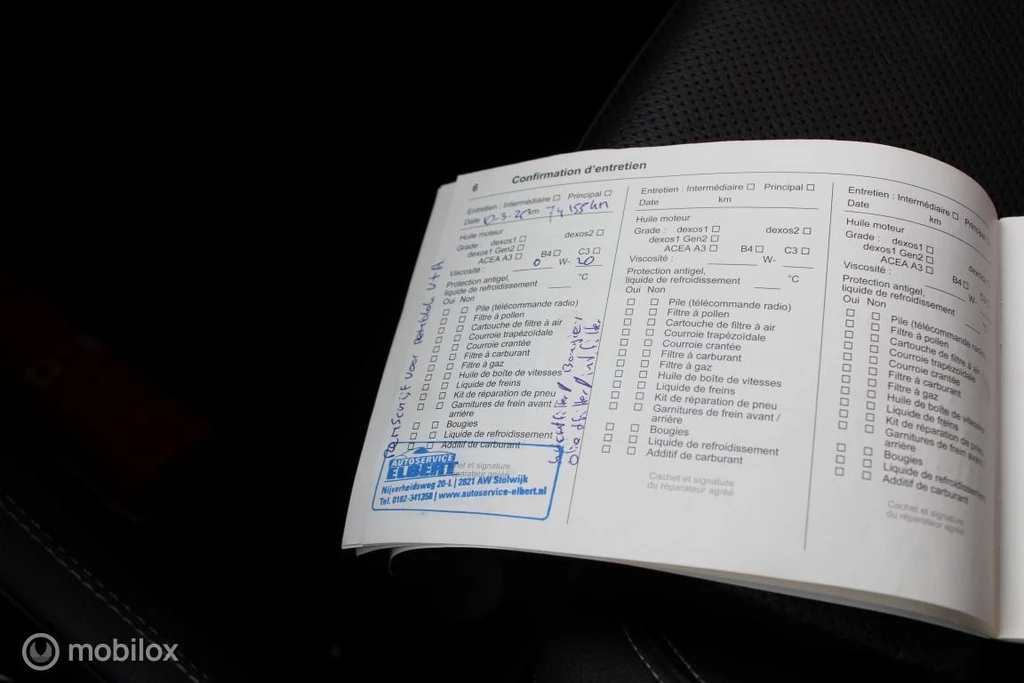 6 Confirmation d'entretien
Entretien : Intermédiaire Principal
Date km 74 155km
Huile moteur
Grade : dexos1 dexos2
dexos1 Gen2
ACEA A3 B4 C3
Viscosité : 0 W- 20
Protection antigel,
liquide de refroidissement
Oui Non
Pile (télécommande radio)
Filtre à pollen
Cartouche de filtre à air
Courroie trapézoïdale
Courroie crantée
Filtre à carburant
Filtre à gaz
Huile de boîte de vitesses
Liquide de freins
Kit de réparation de pneu
Garnitures de frein avant /
arrière
Bougies
Liquide de refroidissement
Additif de carburant
Cachet et signature
réparateur agréé
AUTOSERVICE
ELBERT
Nijverheidsweg 20-L | 2821 AW Stolwijk
Tel. 0182-341358 | www.autoservice-elbert.nl
Remschijf voor Remblok V+A
Luchtfilter / Bougies /
Olie filter / int filter
Entretien : Intermédiaire Principal
Date km
Huile moteur
Grade : dexos1 dexos2
dexos1 Gen2
ACEA A3 B4 C3
Viscosité : W-
Protection antigel,
liquide de refroidissement °C
Oui Non
Pile (télécommande radio)
Filtre à pollen
Cartouche de filtre à air
Courroie trapézoïdale
Courroie crantée
Filtre à carburant
Filtre à gaz
Huile de boîte de vitesses
Liquide de freins
Kit de réparation de pneu
Garnitures de frein avant /
arrière
Bougies
Liquide de refroidissement
Additif de carburant
Cachet et signature
du réparateur agréé
Entretien : Intermédiaire Principal
Date km
Huile moteur
Grade : dexos1
dexos1 Gen2
ACEA A3 B4
Viscosité : W-
Protection antigel,
liquide de refroidissement
Oui Non
Pile (télécommande
Filtre à pollen
Cartouche de filtre à air
Courroie trapézoïdale
Courroie crantée
Filtre à carburant
Filtre à gaz
Huile de boîte de vitesses
Liquide de freins
Kit de réparation de pneu
Garnitures de frein avant
arrière
Bougies
Liquide de refroidissement
Additif de carburant
Cachet et signature
du réparateur agréé
mobilox